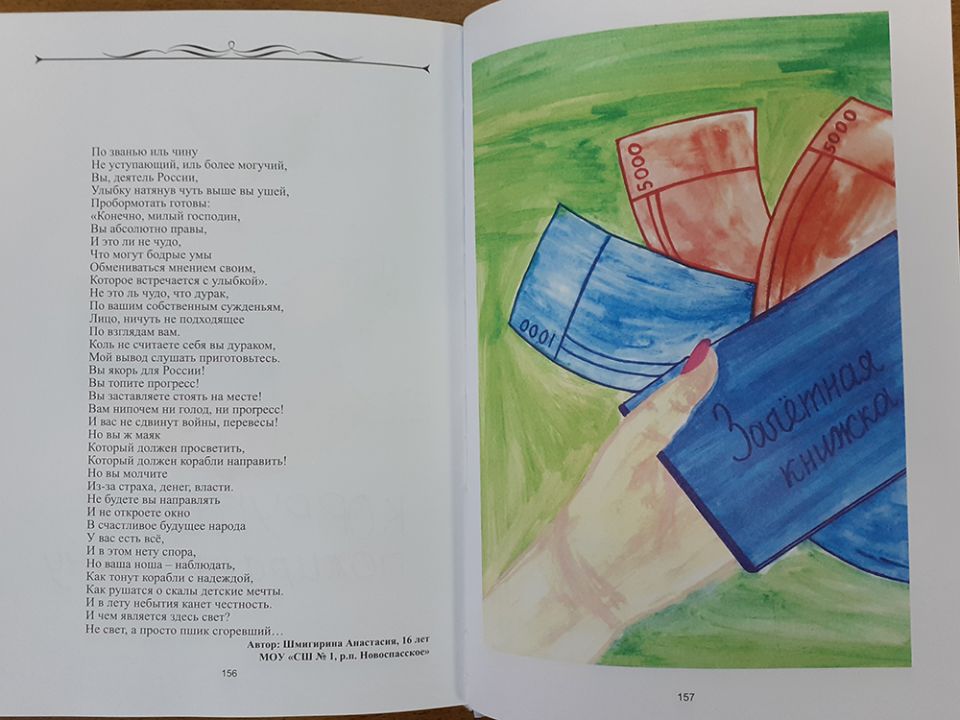 По званью иль чину
Не уступающий, иль более могучий,
Вы, деятель России,
Улыбку натянув чуть выше вы ушей,
Пробормотать готовы:
«Конечно, милый господин,
Вы абсолютно правы,
И это ли не чудо,
Что могут бодрые умы
Обмениваться мнением своим,
Которое встречается с улыбкой».
Не это ль чудо, что дурак,
По вашим собственным сужденьям,
Лицо, ничуть не подходящее
По взглядам вам.
Коль не считаете себя вы дураком,
Мой вывод слушать приготовьтесь.
Вы якорь для России!
Вы топите прогресс!
Вы заставляете стоять на месте!
Вам нипочем ни голод, ни прогресс!
И вас не сдвинут войны, перевесы!
Но вы ж маяк
Который должен просветить,
Который должен корабли направить!
Но вы молчите
Из-за страха, денег, власти.
Не будете вы направлять
И не откроете окно
В счастливое будущее народа
У вас есть всё,
И в этом нету спора,
Но ваша ноша – наблюдать,
Как тонут корабли с надеждой,
Как рушатся о скалы детские мечты.
И в лету небытия канет честность.
И чем является здесь свет?
Не свет, а просто пшик сгоревший…
Автор: Шмигирина Анастасия, 16 лет
МОУ «СШ № 1, р.п. Новоспасское»
156
5000
5000
1000
Зачётная
книжка
157